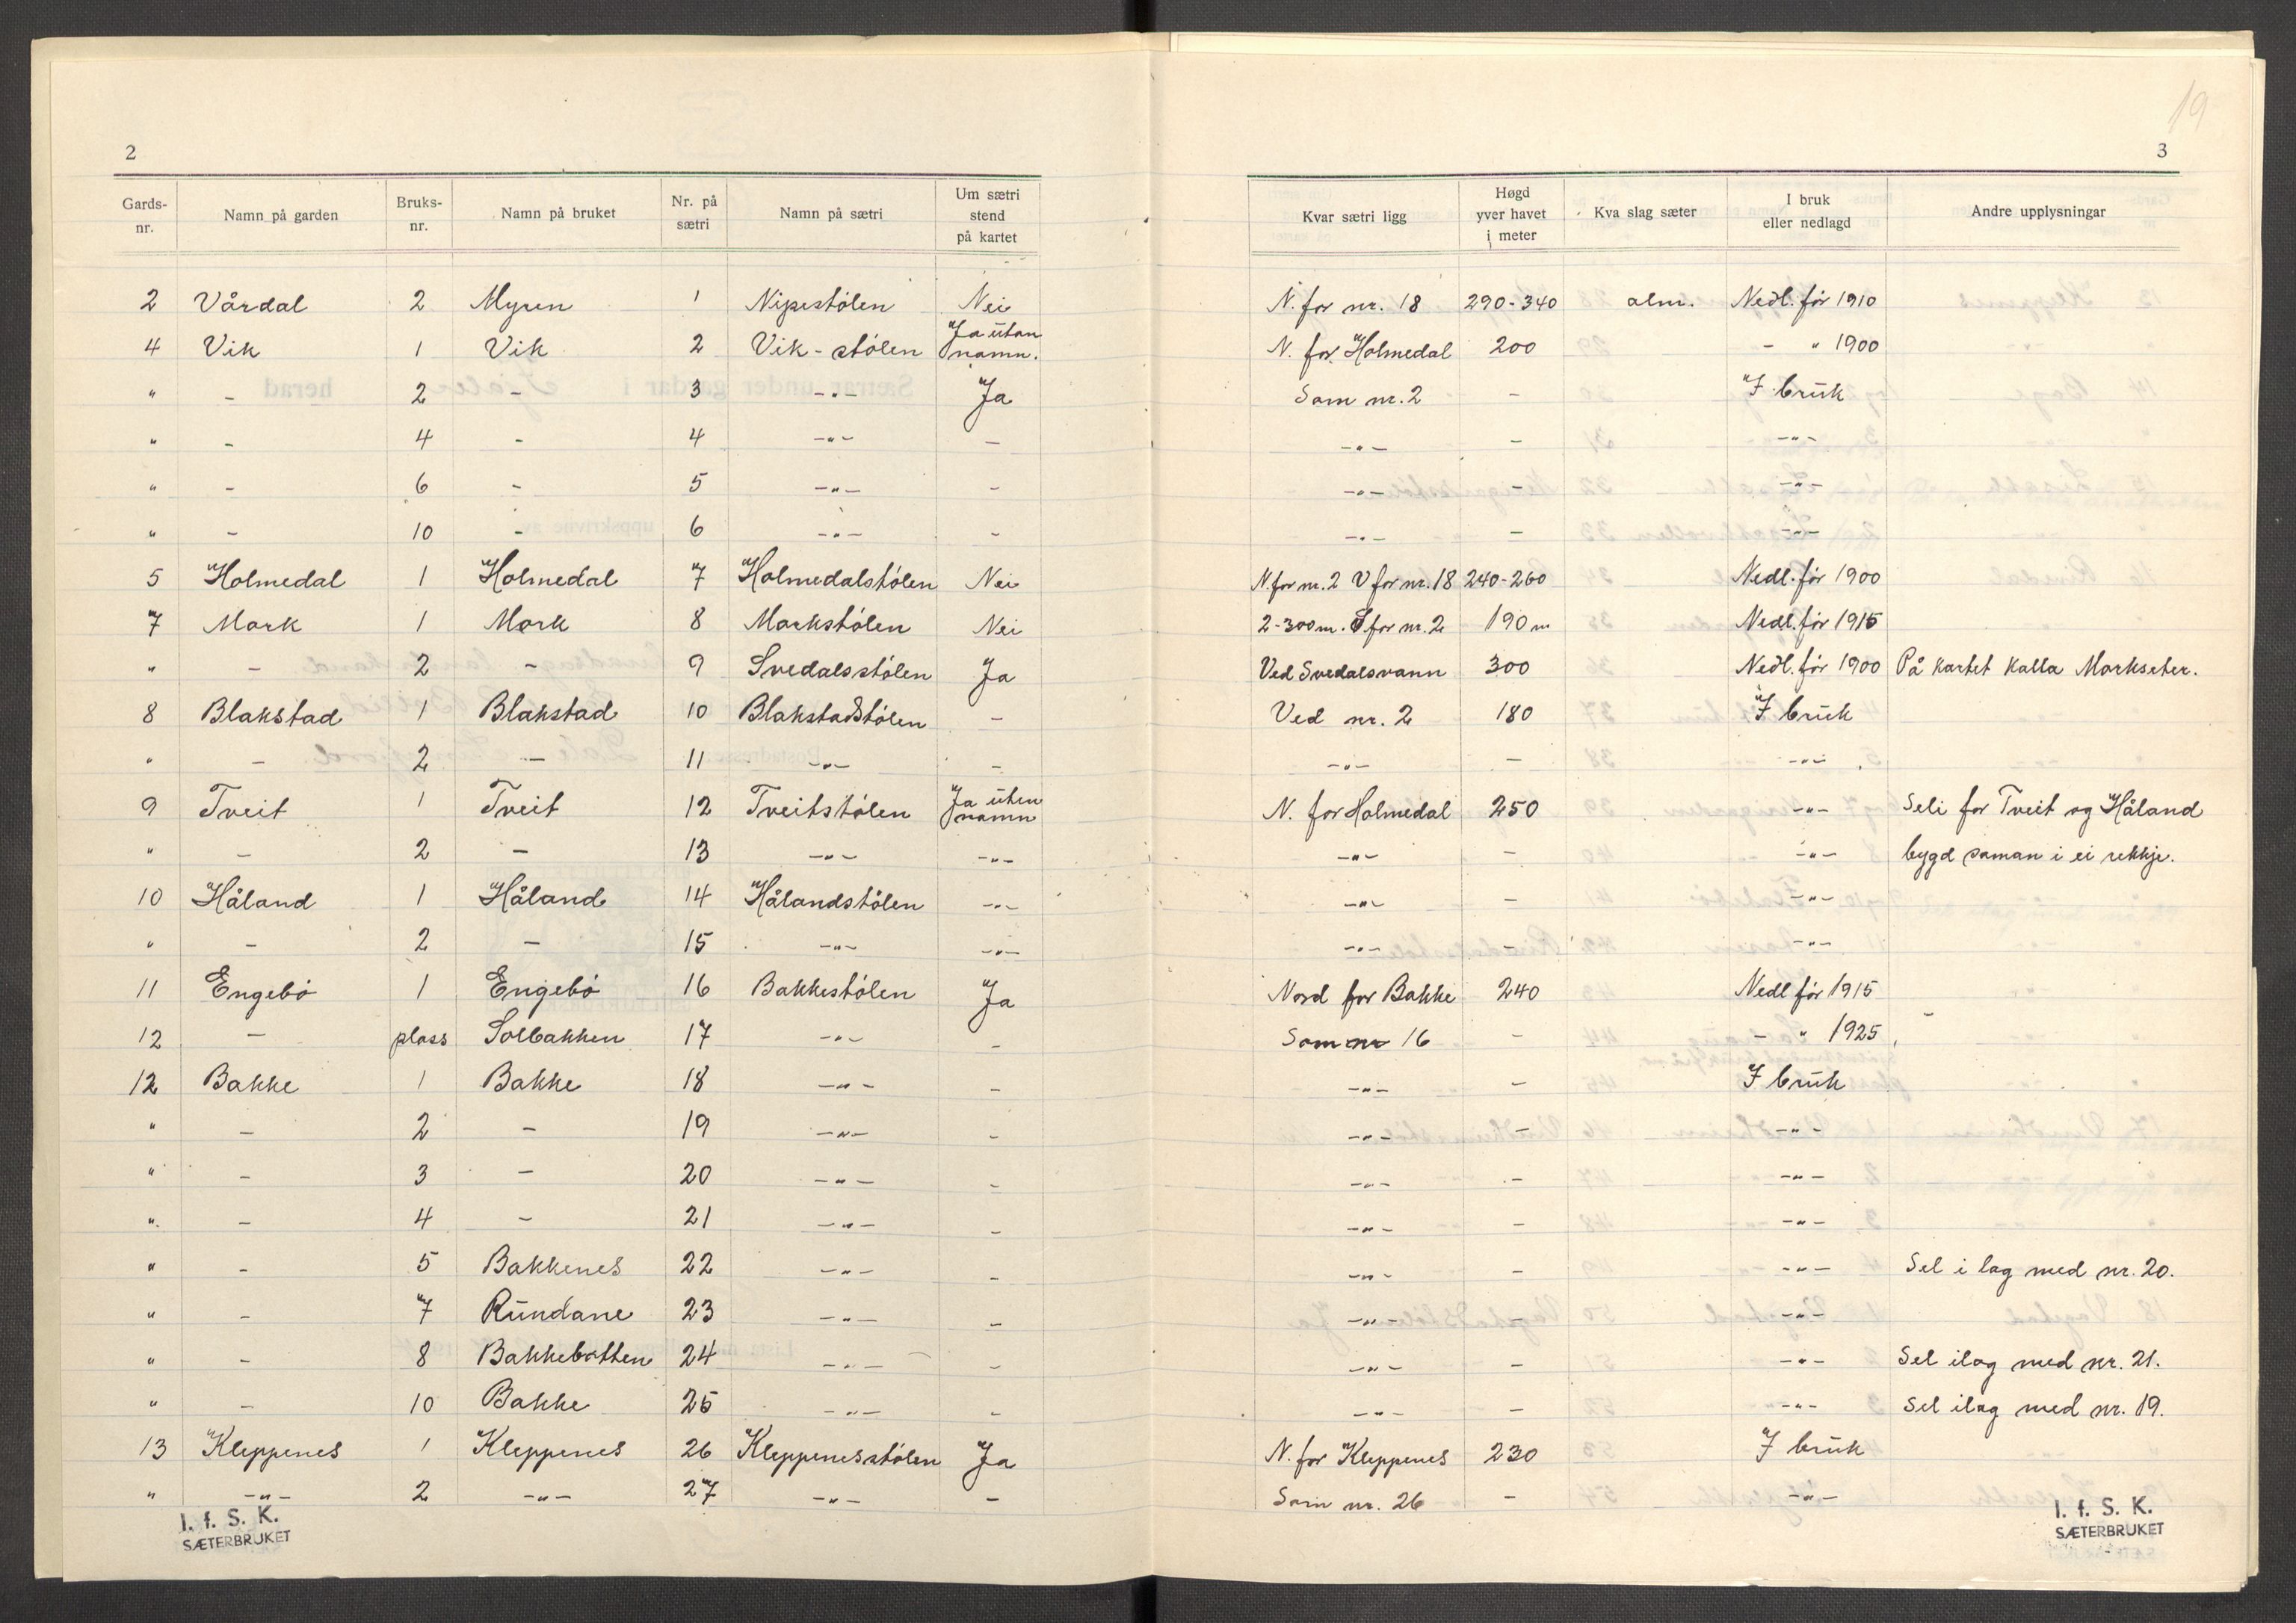 19
2
3
Gards-nr. Namn på garden Bruks-nr. Namn på bruket Nr. på sætri Namn på sætri Um sætri stend på kartet Kvar sætri ligg Høgd yver havet i meter Kva slag sæter I bruk eller nedlagd Andre upplysningar
2 Vårdal 2 Myren 1 Nipestølen Nei N. for nr. 18 290-340 alm. Nedl. før 1910
4 Vik 1 Vik 2 Vik-stølen Ja utan namn. N. for Holmedal 200 - " 1900
" - 2 - 3 -"- Ja Som nr. 2 - I bruk
" - 4 - 4 -"- - -"- - -"-
" - 6 - 5 -"- - -"- - -"-
" - 10 - 6 -"- - -"- - -"-
5 Holmedal 1 Holmedal 7 Holmedalstølen Nei N. for nr. 2 V for nr. 18 240-260 Nedl. før 1900
7 Mork 1 Mork 8 Morkstølen Nei 2-300 m. S for nr. 2 190 m Nedl. før 1915
" - 2 - 9 Svedalsstølen Ja Ved Svedalsvann 300 Nedl. før 1900 På kartet kalla Markseter.
8 Blakstad 1 Blakstad 10 Blakstadstølen - Ved nr. 2 180 I bruk
" - 2 - 11 -"- - -"- - -"-
9 Tveit 1 Tveit 12 Tveitstølen Ja uten namn N. for Holmedal 250 -"- Seli for Tveit og Håland
" - 2 - 13 -"- -"- -"- - -"- bygd saman i ei rekkje.
10 Håland 1 Håland 14 Hålandstølen -"- -"- - -"-
" - 2 - 15 -"- -"- -"- - -"-
11 Engebø 1 Engebø 16 Bakkestølen Ja Nord for Bakke 240 Nedl før 1915
12 - plass Solbakken 17 -"- - Som nr 16 - - " 1925
12 Bakke 1 Bakke 18 -"- - -"- - I bruk
" - 2 - 19 -"- - -"- - -"-
" - 3 - 20 -"- - -"- - -"-
" - 4 - 21 -"- - -"- - -"-
" - 5 Bakkenes 22 -"- - -"- - -"- Sel i lag med nr. 20.
" - 7 Rundane 23 -"- - -"- - -"-
" - 8 Bakkebotten 24 -"- - -"- - -"- Sel ilag med nr. 21.
" - 10 Bakke 25 -"- - -"- - -"- Sel ilag med nr. 19.
13 Kleppenes 1 Kleppenes 26 Kleppenesstølen Ja N. for Kleppenes 230 I bruk
" -"- 2 -"- 27 -"- - Som nr. 26 - -"-
I. f. S. K.
SÆTERBRUKET
I. f. S. K.
SÆTERBRUKET